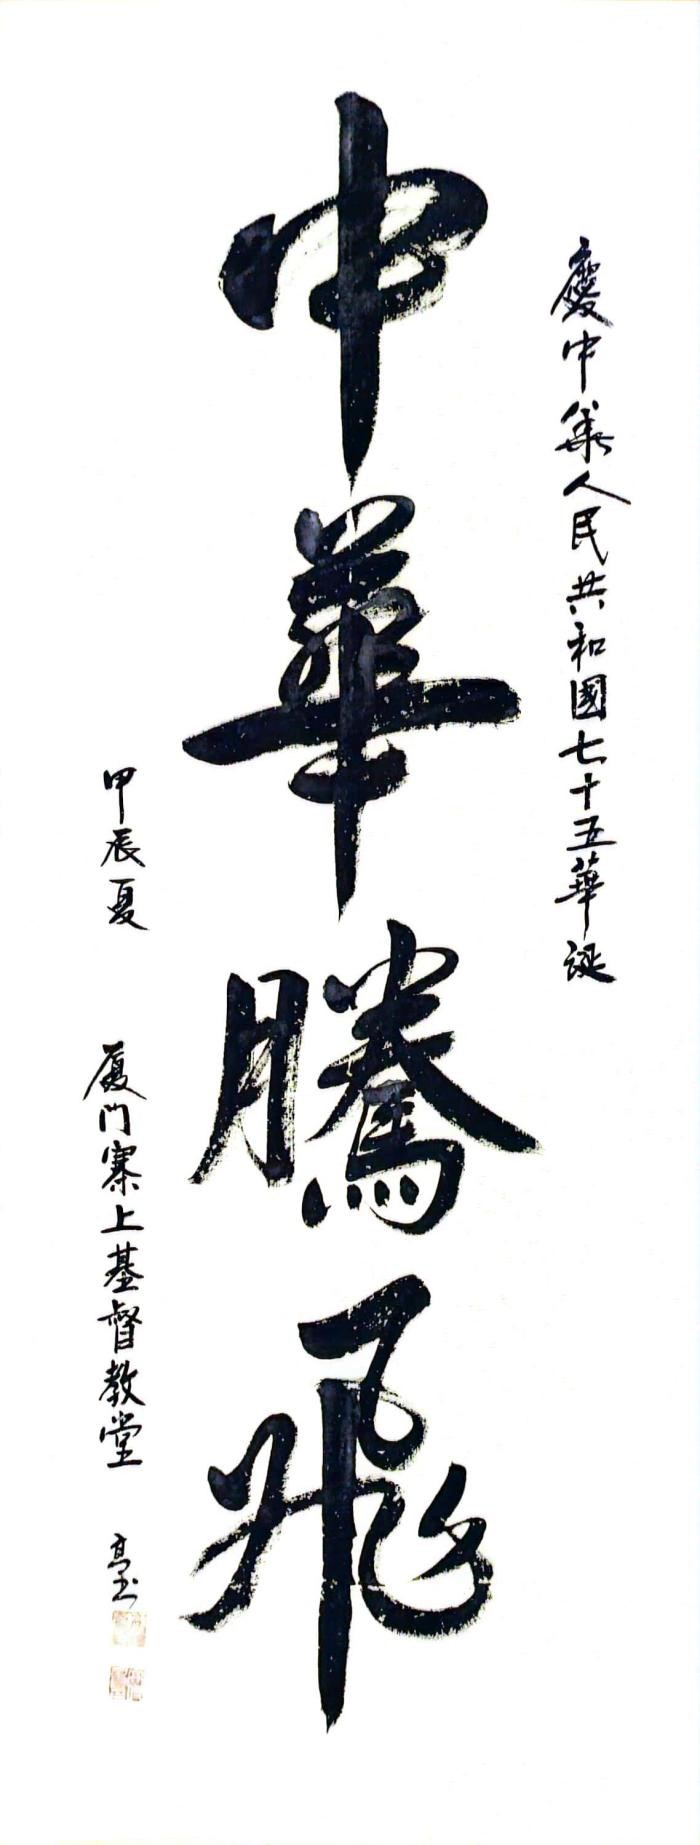 慶中華人民共和國七十五華誕
中華騰飛
甲辰夏 厦门寨上基督教堂